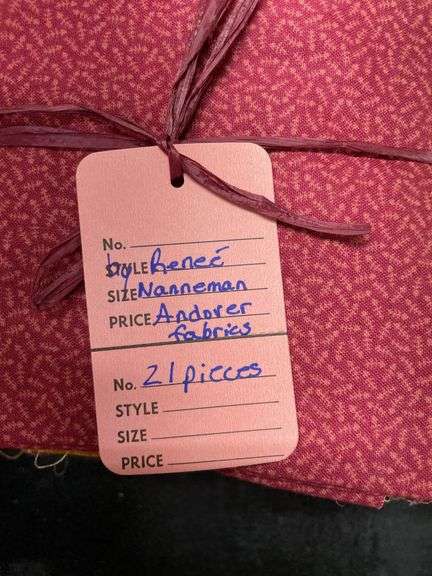 No.
STYLE by Reneé
SIZE Nanneman
PRICE Andover
fabrics
No. 21 pieces
STYLE
SIZE
PRICE